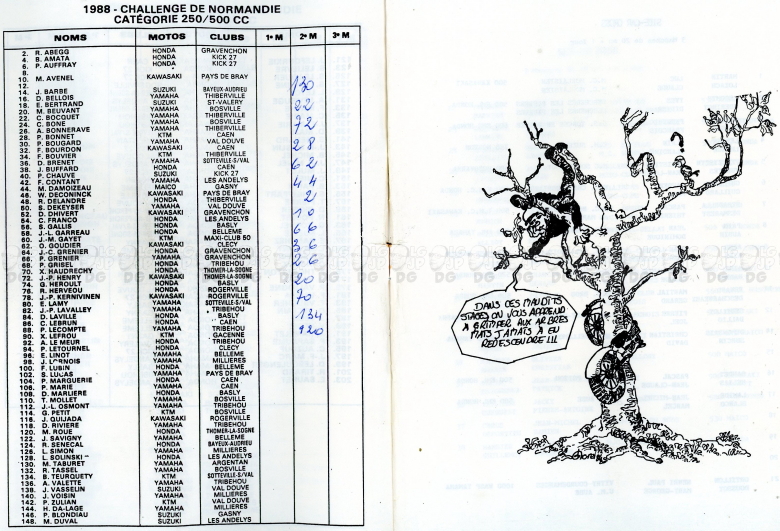 1988 - CHALLENGE DE NORMANDIE
CATÉGORIE 250/500 CC
NOMS MOTOS CLUBS 1º M 2º M 3º M
2. R. ABEGG HONDA GRAVENCHON
4. B. AMATA HONDA KICK 27
6. P. AUFFRAY HONDA KICK 27
8.
10. M. AVENEL KAWASAKI PAYS DE BRAY
12. 130
14. J. BARBE SUZUKI BAYEUX-AUDRIEU
16. D. BELLOIS YAMAHA THIBERVILLE
18. E. BERTRAND SUZUKI ST-VALERY 22
20. M. BEUVANT YAMAHA BOSVILLE
22. C. BOCQUET YAMAHA THIBERVILLE
24. C. BONE YAMAHA BOSVILLE 72
26. A. BONNERAVE YAMAHA THIBERVILLE
28. P. BONNET KTM CAEN
30. P. BOUGARD YAMAHA VAL DOUVE 28
32. F. BOURDON KAWASAKI CAEN
34. F. BOUVIER KTM THIBERVILLE
36. D. BRENET YAMAHA SOTTEVILLE-S/VAL 62
38. J. BUFFARD HONDA CAEN
40. P. CHAUVE SUZUKI KICK 27
42. F. CONTANT YAMAHA LES ANDELYS 44
44. M. DAMOIZEAU MAICO GASNY
46. W. DECONINCK KAWASAKI PAYS DE BRAY
48. R. DELANDRE HONDA THIBERVILLE 2
50. S. DEKEYSER YAMAHA VAL DOUVE
52. D. DHIVERT KAWASAKI GRAVENCHON 10
54. C. FRANCO HONDA LES ANDELYS
56. S. GALLIS HONDA BASLY
58. J.-L. GARREAU HONDA BELLEME 66
60. J.-M. GAYET KTM MAXI-CLUB 50
62. O. GOUDIER KAWASAKI CLECY 36
64. J.-C. GRENIER HONDA GRAVENCHON
66. P. GRENIER YAMAHA GRAVENCHON 26
68. P. GRISEL HONDA TRIBEHOU
70. X. HAUDRECHY HONDA THOMER-LA-SOGNE
72. J.-P. HENRY KAWASAKI THOMER-LA-SOGNE 20
74. G. HEROULT HONDA BASLY
76. R. HERVEOU HONDA ROGERVILLE
78. J.-P. KERNIVINEN KAWASAKI ROGERVILLE 70
80. E. LAMY YAMAHA SOTTEVILLE-S/VAL
82. J.-P. LAVALLEY YAMAHA TRIBEHOU
84. D. LAVILLE HONDA BASLY 134
86. C. LEBRUN HONDA CAEN
88. P. LECOMPTE YAMAHA TRIBEHOU 120
90. X. LEFROU KTM GACENNE
92. A. LE MEUR HONDA TRIBEHOU
94. P. LETOURNEL HONDA CLECY
96. E. LINOT YAMAHA BELLEME
98. J. YAMAHA MILLIERES
100. F. LUBIN HONDA BELLEME
102. S. LUCAS YAMAHA PAYS DE BRAY
104. P. MARGUERIE HONDA CAEN
106. P. MARIE YAMAHA CAEN
108. D. MARLIERE HONDA BASLY
110. T. MOLLET YAMAHA BOSVILLE
112. J.-L. OSMONT YAMAHA TRIBEHOU
114. G. PETIT KTM BOSVILLE
116. J. QUIJADA KAWASAKI ROGERVILLE
118. D. RIVIERE YAMAHA TRIBEHOU
120. M. ROUE HONDA THOMER-LA-SOGNE
122. J. SAVIGNY YAMAHA BELLEME
124. R. SENECAL HONDA BAYEUX-AUDRIEU
126. L. SIMON YAMAHA MILLIERES
128. L. SOLINSKI HONDA LES ANDELYS
130. M. TABURET YAMAHA ARGENTAN
132. R. TASSEL YAMAHA BOSVILLE
134. B. TEURQUETY KTM SOTTEVILLE-S/VAL
136. A. VALETTE YAMAHA TRIBEHOU
138. J. VASSELIN SUZUKI VAL DOUVE
140. J. VOISIN YAMAHA MILLIERES
142. P. ZULIAN KTM VAL DOUVE
144. H. DA-LAGE YAMAHA MILLIERES
146. P. BLONDIAU SUZUKI GASNY
148. M. DUVAL SUZUKI LES ANDELYS
?
DANS CES MAUDITS
STAGES ON VOUS APPREND
A GRIMPER AUX ARBRES
MAIS JAMAIS A EN
REDESCENDRE !!!
DG DG DG DG DG DG DG